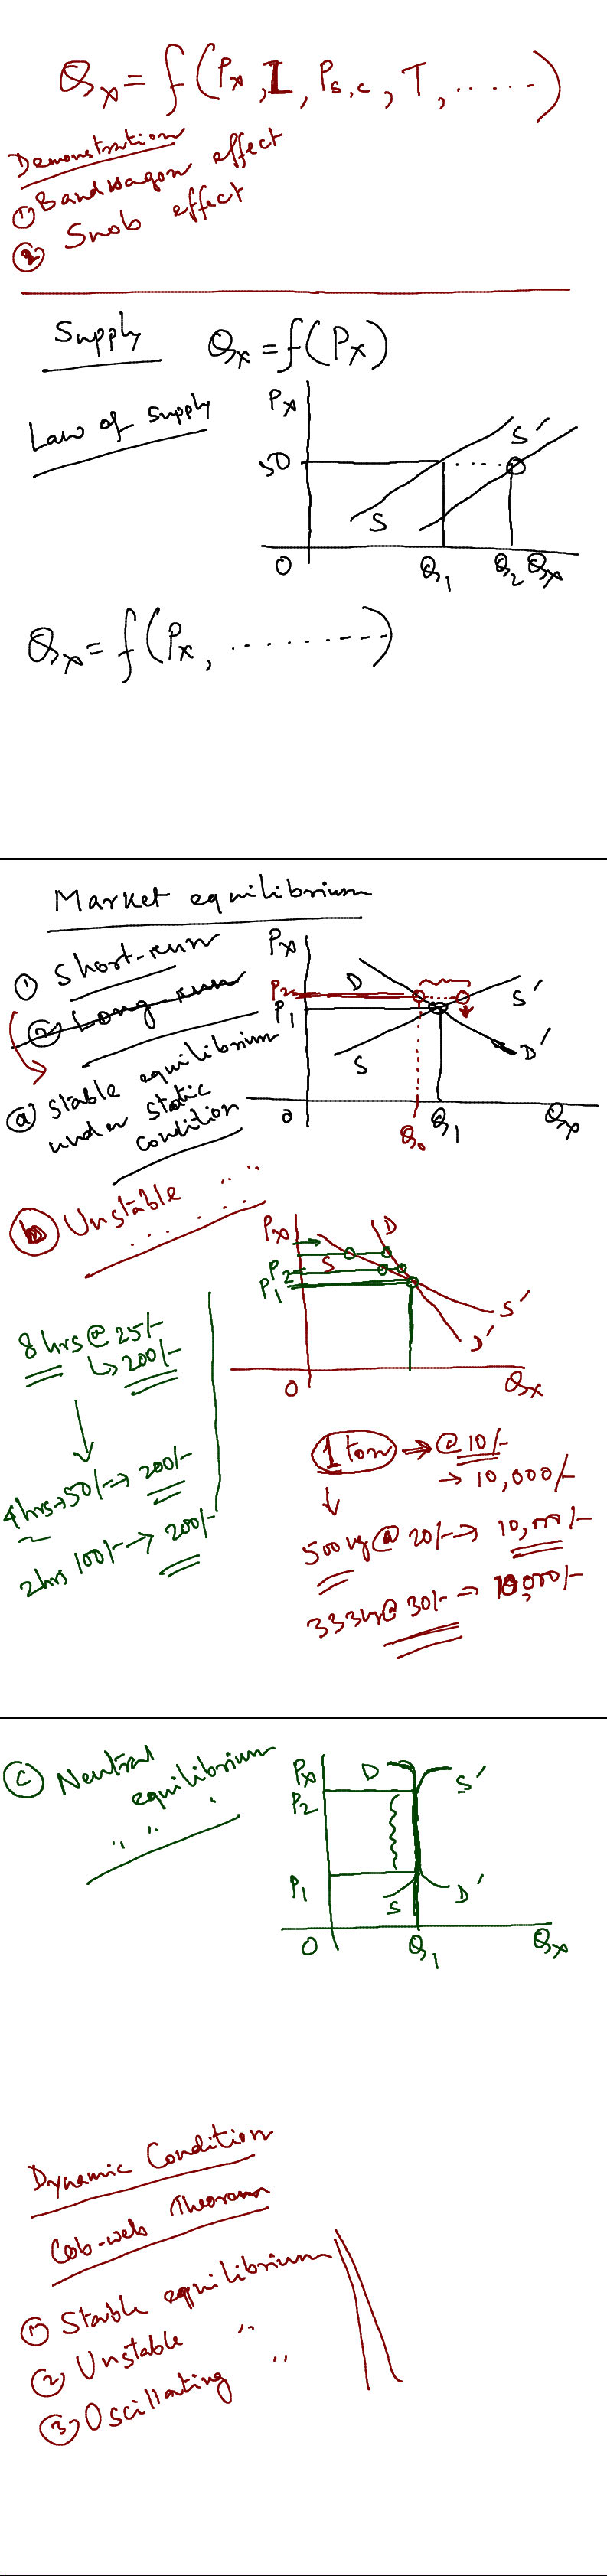 Qx = f(Px, I, Ps,c, T, ......)
Demonstration
① Bandwagon effect
② Snob effect
Supply Qx = f(Px)
Law of Supply
Px
S'
50
S
O Q1 Q2 Qx
Qx = f(Px, ..........)
Market equilibrium
① Short-run
② Long-run
ⓐ Stable equilibrium
under static
condition
Px
D
P2
S'
P1
S
D'
O Q0 Q1 Qx
ⓑ Unstable ,, ,,
Px
D
S
P2
P1
S'
D'
O Qx
8 hrs @ 25/-
↳ 200/-
↓
4 hrs → 50/- → 200/-
2 hrs 100/- → 200/-
1 ton → @ 10/-
→ 10,000/-
↓
500 kg @ 20/- → 10,000/-
333 kg @ 30/- → 10,000/-
ⓒ Neutral
equilibrium
,, ,, ,
Px
D
S'
P2
P1
S
D'
O Q1 Qx
Dynamic Condition
Cob-web Theorem
① Stable equilibrium
② Unstable ,,
③ Oscillating ,,